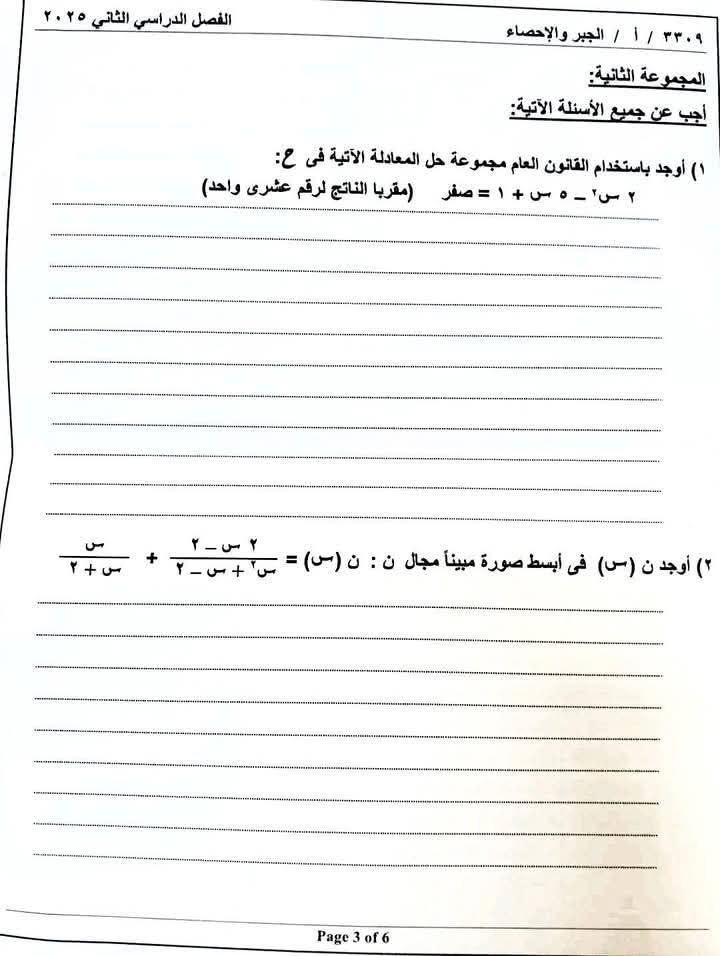 ٣٣٠٩ / أ / الجبر والإحصاء الفصل الدراسي الثاني ٢٠٢٥
المجموعة الثانية:
أجب عن جميع الأسئلة الآتية:
١) أوجد باستخدام القانون العام مجموعة حل المعادلة الآتية فى ح:
٢ س٢ – ٥ س + ١ = صفر (مقربا الناتج لرقم عشرى واحد)
٢) أوجد ن (س) فى أبسط صورة مبيناً مجال ن : ن (س) = (٢ س – ٢)/(س٢ + س – ٢) + س/(س + ٢)
Page 3 of 6